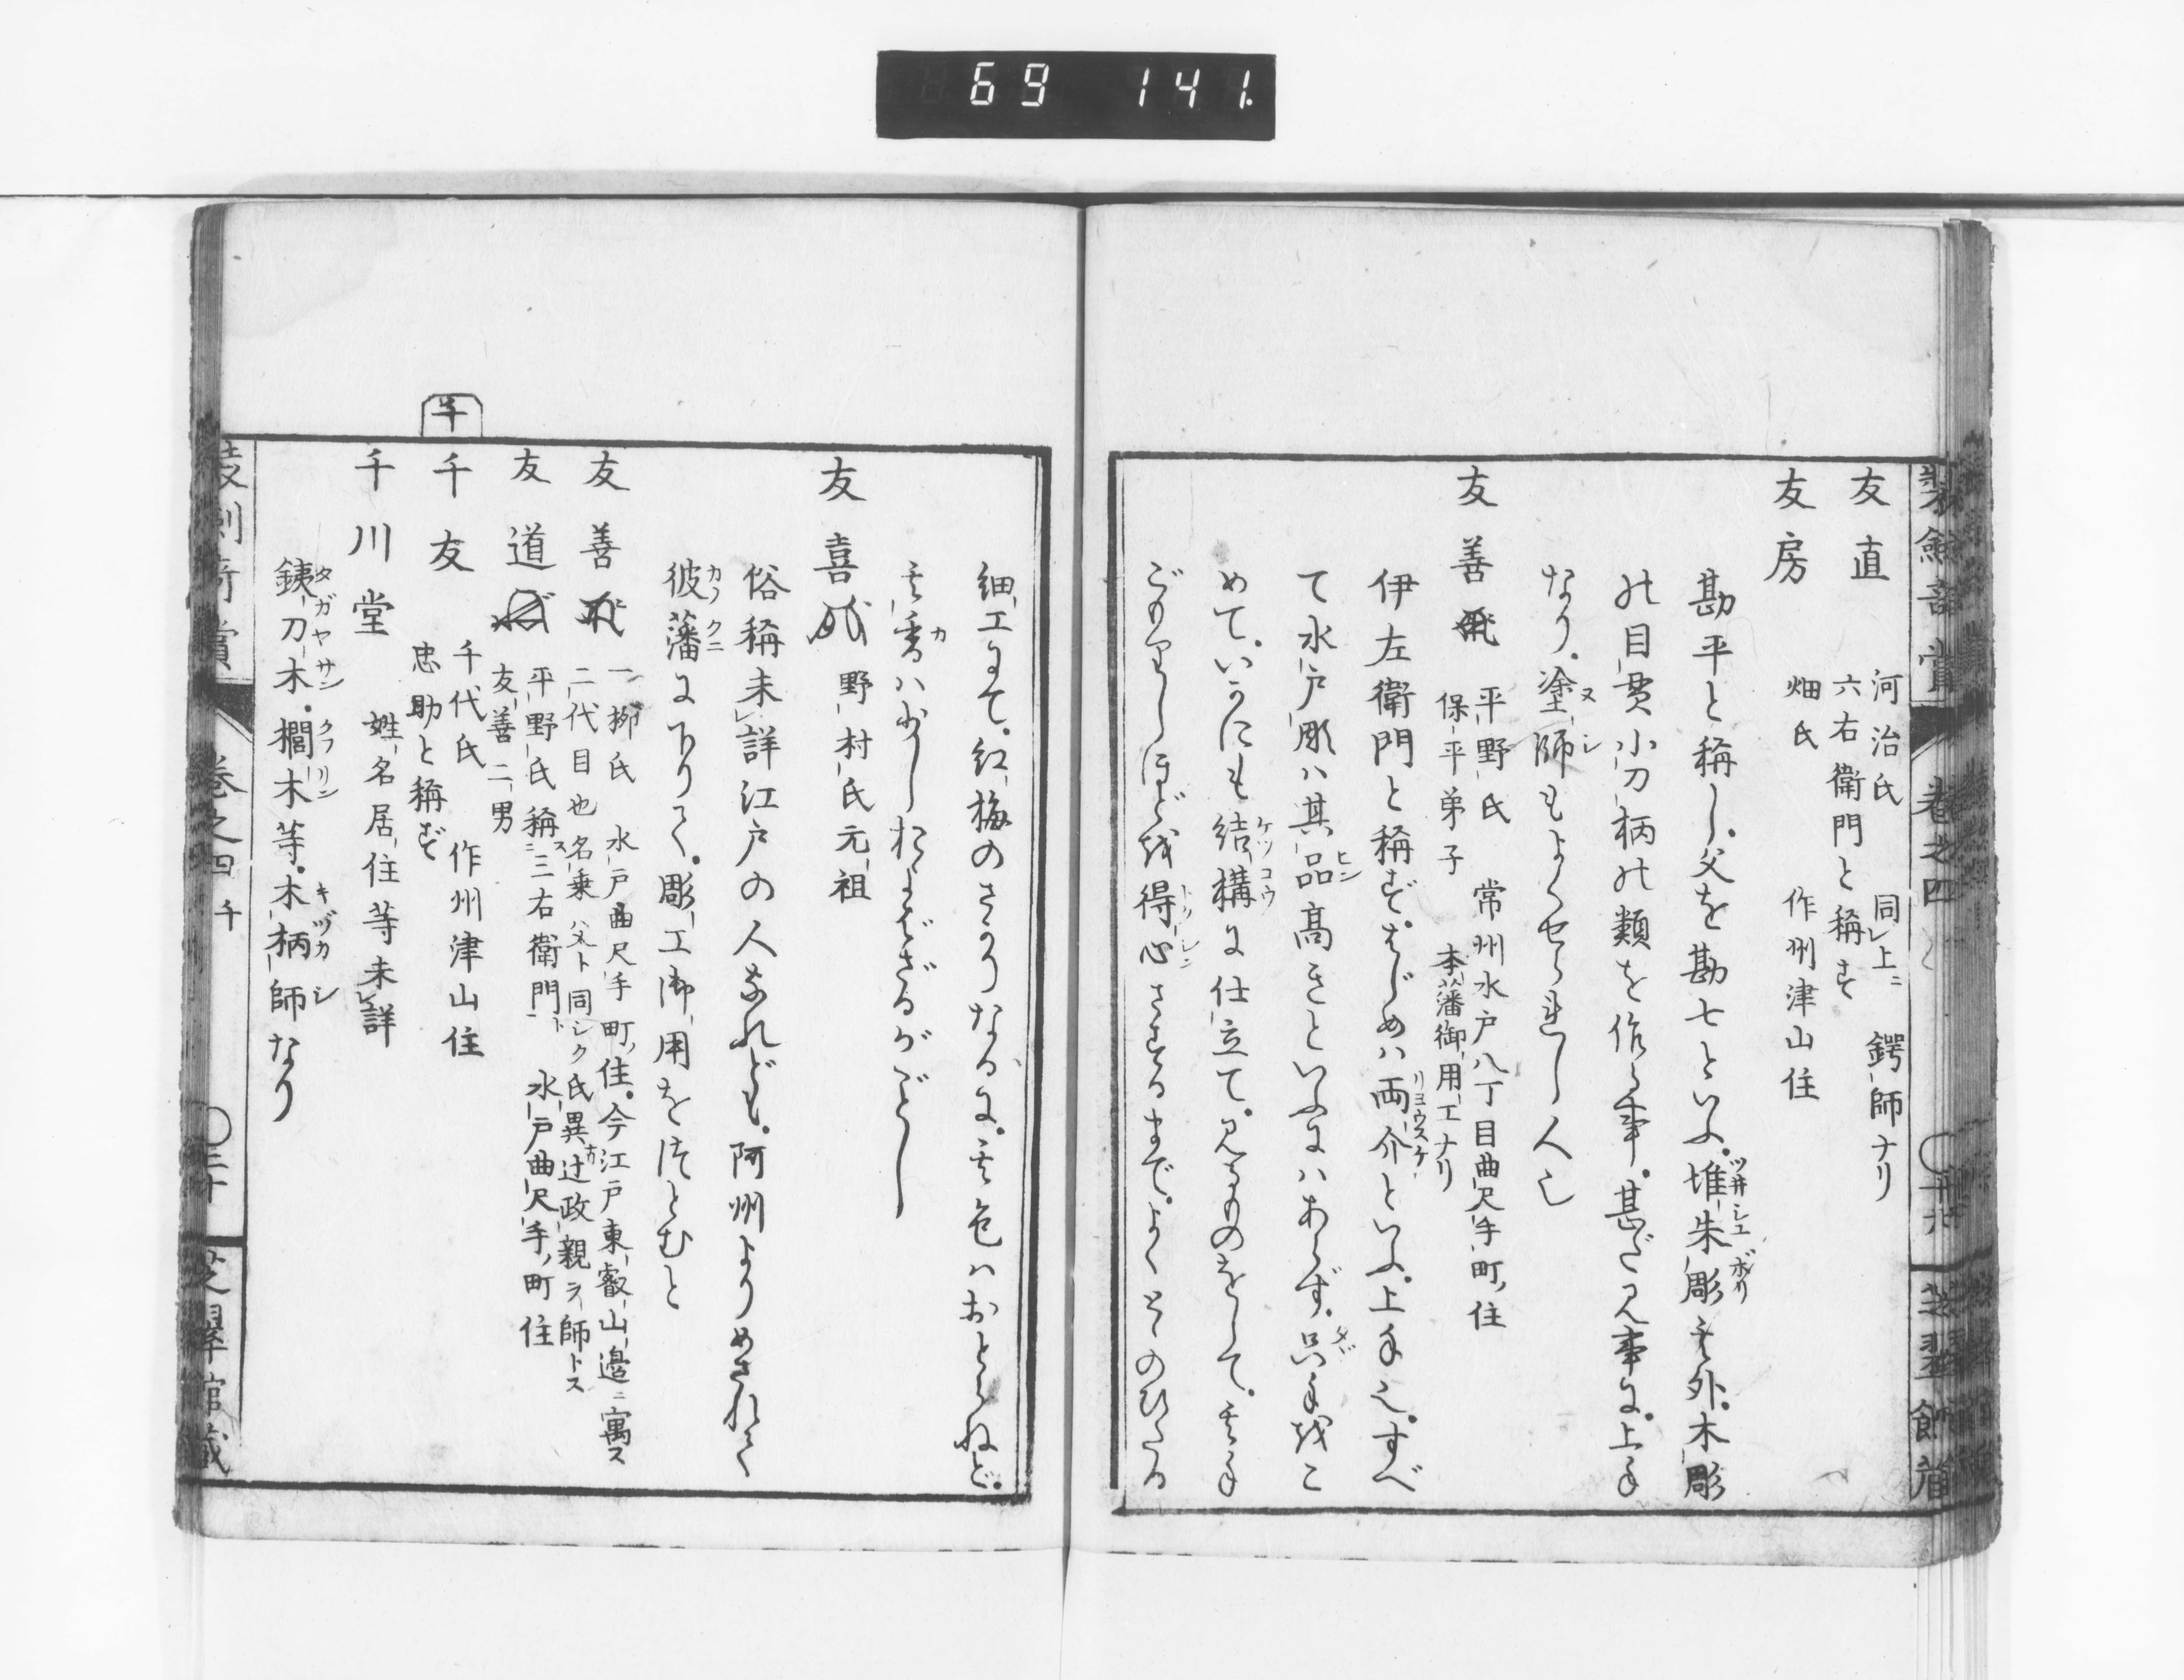 69 141
装劔奇賞 巻之四 と 〇廿九 芝翠館蔵
友直 河治氏 同レ上ニ 鍔師ナリ
六右衛門と稱す
友房 畑氏 作州津山住
勘平と稱し、父を勘七といふ。堆朱彫其外。木彫
の目貫小刀柄の類を作る事。甚だ見事に。上手
なり。塗師もよくせられし人也
友善 平野氏 常州水戸八丁目曲尺手町住
保平弟子 本藩御用工ナリ
伊左衛門と稱ず。はじめハ両介といふ。上手也。すべ
て水戸彫ハ其品高きといふにハあらず。只手を こ
めて。いかにも結構に仕立て。見るものをして。其手
ごもりしほどを得心さするまで。よくとゝのひたる
細工にて。紅梅のさかりなるに。其色ハおとらねど。
其香ハ少しおよばざるがごとし
友喜 野村氏元祖
俗稱未レ詳江戸の人なれども。阿州よりめされて
彼藩に下りて。彫工御用をつとむと
友善 一柳氏 水戸曲尺手町住。今江戸東叡山邊ニ寓ス
二代目也名乗ハ父ト同シク氏異ナリ辻政親ヲ師トス
友道 平野氏稱ス三右衛門ト 水戸曲尺手町住
友善二男
千
千友 千代氏 作州津山住
忠助と稱ず
千川堂 姓名居住等未レ詳
銕刀木。櫚木等。木柄師なり
装劔奇賞 巻之四 千 〇三十 芝翠館蔵